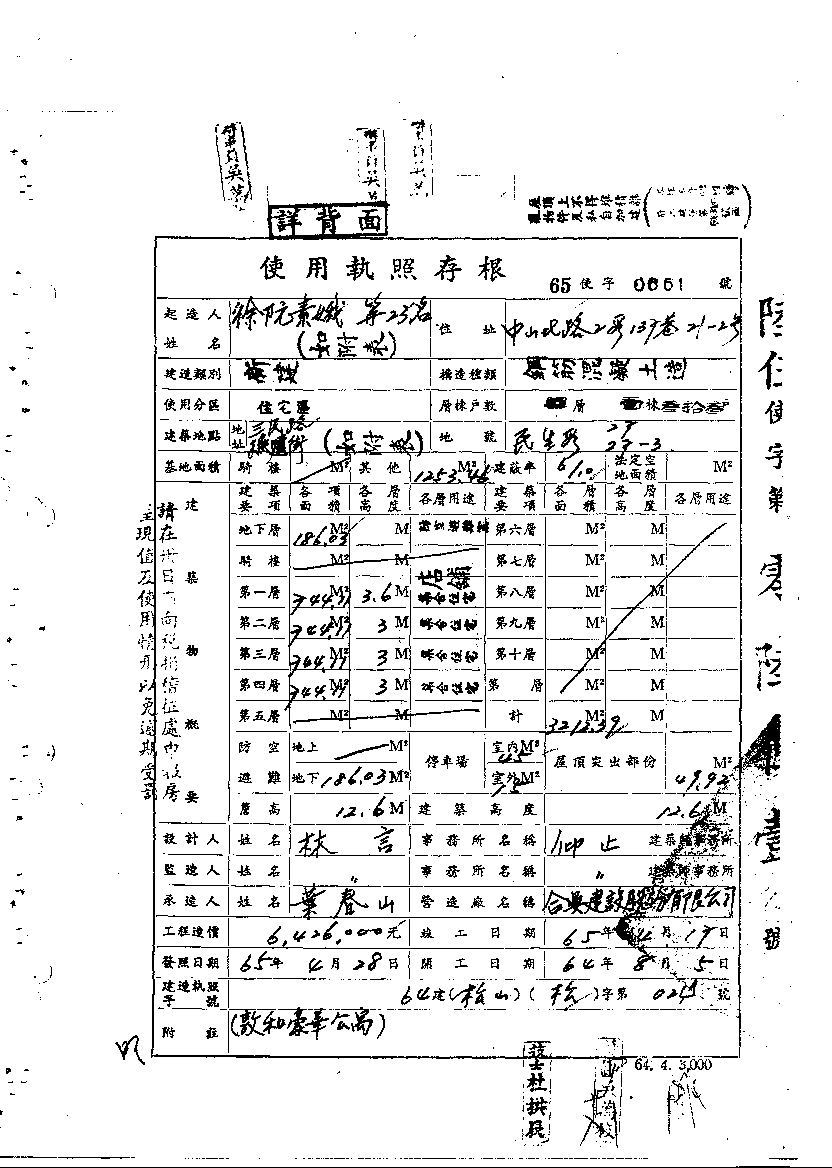 詳背面
屋頂上不得堆積雜
使用執照存根
65 使字 0651 號
起造人姓名 徐阮素娥 等23名 (如附表) 住址 中山北路2段137巷21-2號
建造類別 新建 構造種類 鋼筋混凝土造
使用分區 住宅區 層棟戶數 層 棟叁拾叁戶
建築地點 地址 三民路 (如附表) 地號 民生段 27 27-3
基地面積 騎樓 M² 其他 1253.46 M² 建蔽率 61.0 法定空地面積 M²
建築物概要
建築要項 各項面積 各層高度 各層用途 建築要項 各層面積 各層高度 各層用途
地下層 186.03 M² M 第六層 M² M
騎樓 M² M 第七層 M² M
第一層 744.77 M² 3.6 M 店舖 集合住宅 第八層 M² M
第二層 744.77 M² 3 M 集合住宅 第九層 M² M
第三層 744.77 M² 3 M 集合住宅 第十層 M² M
第四層 744.77 M² 3 M 集合住宅 第 層 M² M
第五層 M² M 計 3213.39 M² M
防空避難 地上 M² 停車場 室內M² 45 屋頂突出部份 M²
地下 186.03 M² 室外M² 75 49.92
簷高 12.6 M 建築高度 12.6 M
設計人 姓名 林言 事務所名稱 仰止 建築師事務所
監造人 姓名 〃 事務所名稱 〃 建築師事務所
承造人 姓名 葉春山 營造廠名稱 合興建設股份有限公司
工程造價 6,426,000元 竣工日期 65年 4月 17日
發照日期 65年 4月 28日 開工日期 64年 8月 5日
建造執照字號 64建(松山)(松)字第 號
附註 (敦和豪華公寓)
64. 4. 3,000
技士杜拱民
請在卅日內向稅捐稽征處申報房
主現值及使用情形以免逾期受罰
陸伍使字第零陸伍壹號